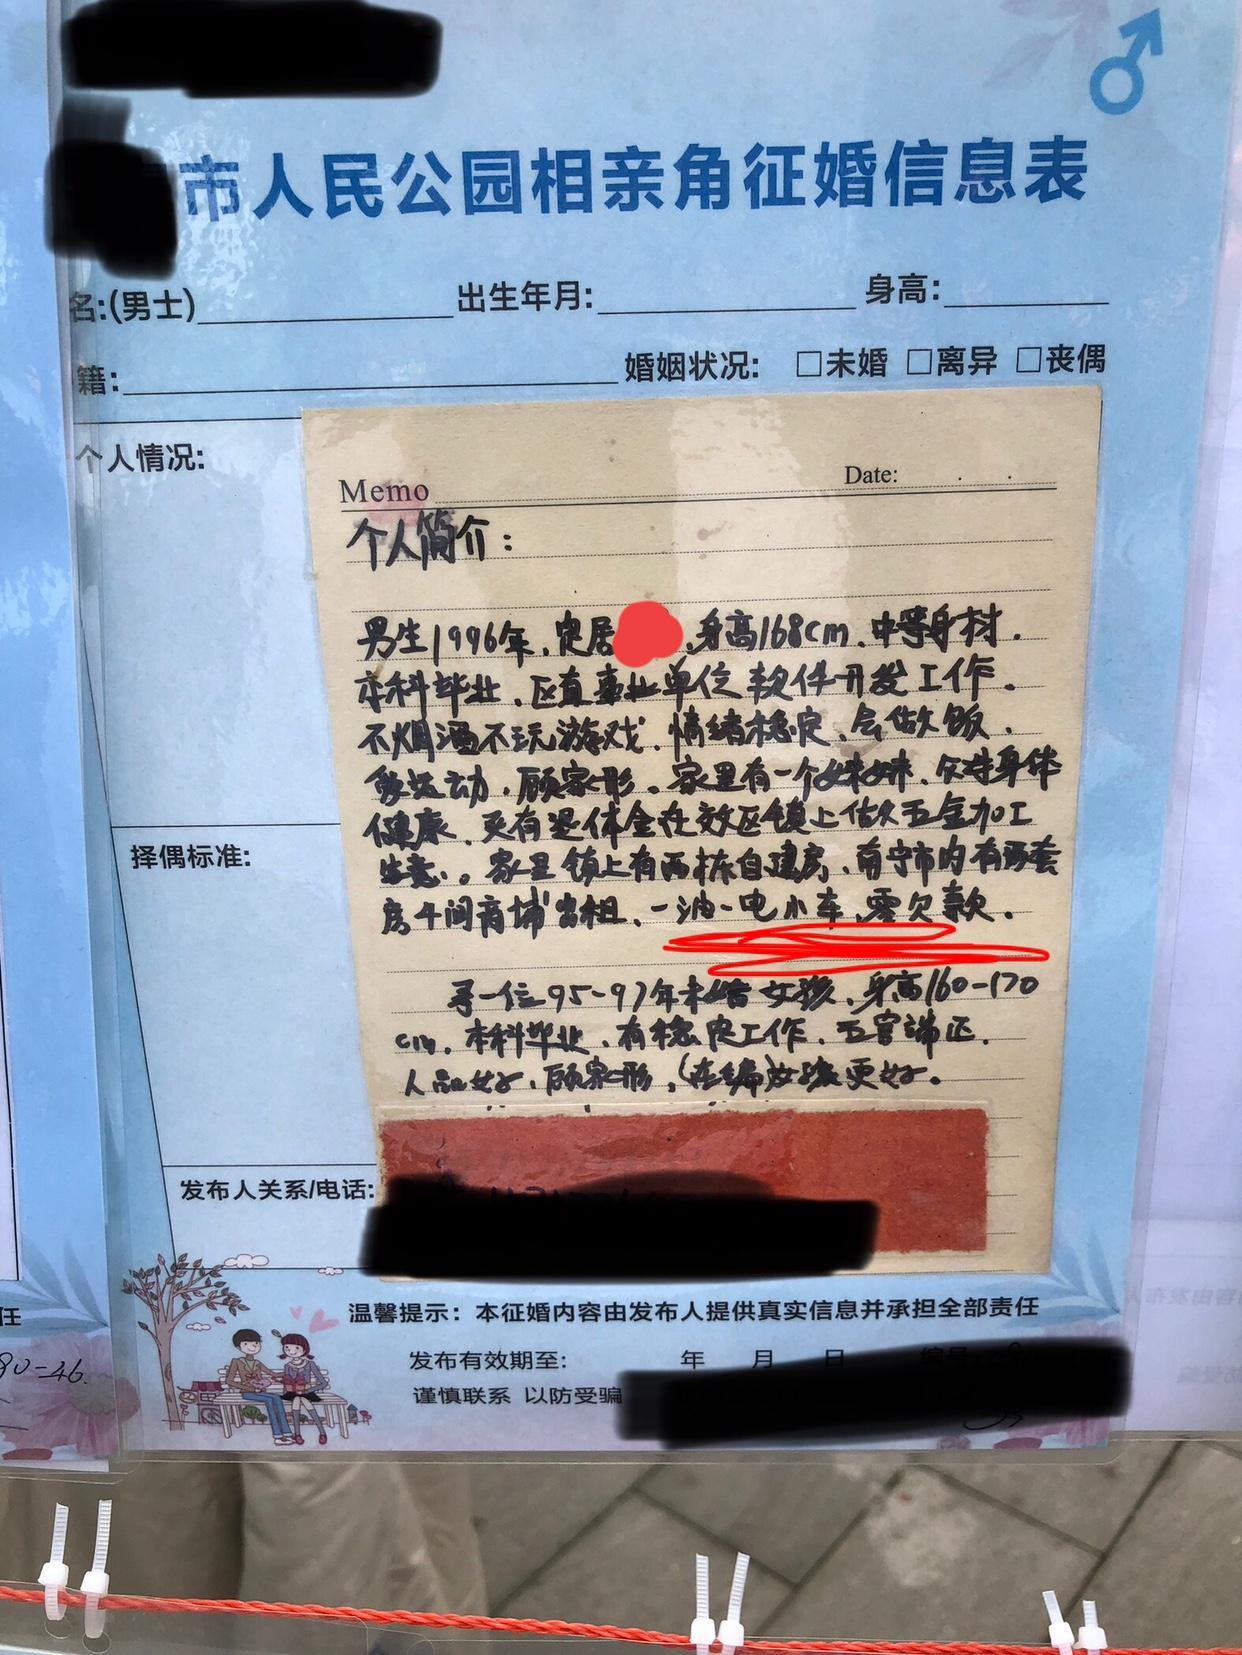 市人民公园相亲角征婚信息表
名:(男士) 出生年月: 身高:
籍: 婚姻状况: □未婚 □离异 □丧偶
个人情况:
Memo Date: . .
个人简介:
男生1996年、定居 、身高168cm、中等身材.
本科毕业、区直事业单位软件开发工作.
不烟酒不玩游戏、情绪稳定、会做饭.
爱运动、顾家形。家里有一个妹妹、父母身体
健康、更有退体金在效区镇上做五金加工
生意。家里镇上有两栋自建房、南宁市内有两套
房 间商埔出租、一油一电小车、零欠款.
寻一位95-97年未婚女孩、身高160-170
cm、本科毕业、有稳定工作、五官端正.
人品好、顾家形,(在编)女孩更好。
择偶标准:
发布人关系/电话:
温馨提示: 本征婚内容由发布人提供真实信息并承担全部责任
发布有效期至: 年 月 日 编号:
谨慎联系 以防受骗
任
90-46.